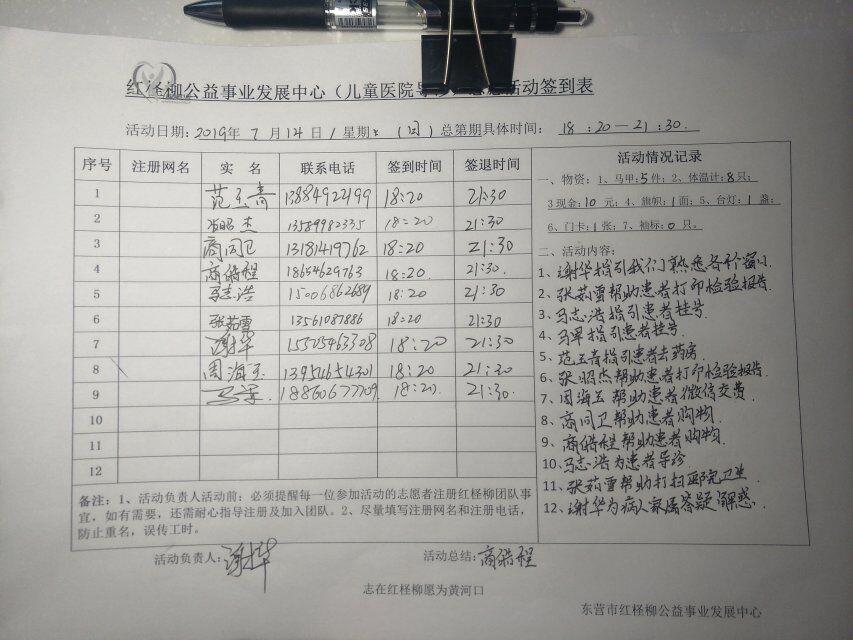 红柽柳公益事业发展中心（儿童医院导 活动签到表
活动日期：2019年 7 月 14 日/星期：（日）总第期具体时间： 18：20—21：30.
序号 注册网名 实 名 联系电话 签到时间 签退时间
1 范玉青 13884922199 18:20 21:30
2 张昭杰 13589982335 18:20 21:30
3 商同卫 13181419762 18:20 21:30
4 商皓程 18654629763 18:20 21:30.
5 马志浩 15006862689 18:20 21:30
6 张茹雪 13561087886 18:20 21:30
7 谢华 15525463308 18:20 21:30
8 周海玉 13954654301 18:20 21:30
9 马军 18860677709 18:20. 21:30.
10
11
12
备注：1、活动负责人活动前：必须提醒每一位参加活动的志愿者注册红柽柳团队事
宜，如有需要，还需耐心指导注册及加入团队。2、尽量填写注册网名和注册电话，
防止重名，误传工时。
活动情况记录
一、物资：1、马甲：5件；2、体温计：8只；
3现金：10 元；4、旗帜：1面；5、台灯：1 盏；
6、门卡：1张；7、袖标：0 只。
二、活动内容：
1、谢华指引我们熟悉各个窗口.
2、张茹雪帮助患者打印检验报告.
3、马志浩指引患者挂号
4、马军指引患者挂号.
5、范玉青指引患者去药房.
6、张昭杰帮助患者打印检验报告.
7、周海玉帮助患者微信交费.
8、商同卫帮助患者购物.
9、商皓程帮助患者购物.
10、马志浩为患者导诊
11、张茹雪帮助打扫医院卫生.
12、谢华为病人家属答疑解惑.
活动负责人：谢华 活动总结：商皓程
志在红柽柳愿为黄河口
东营市红柽柳公益事业发展中心